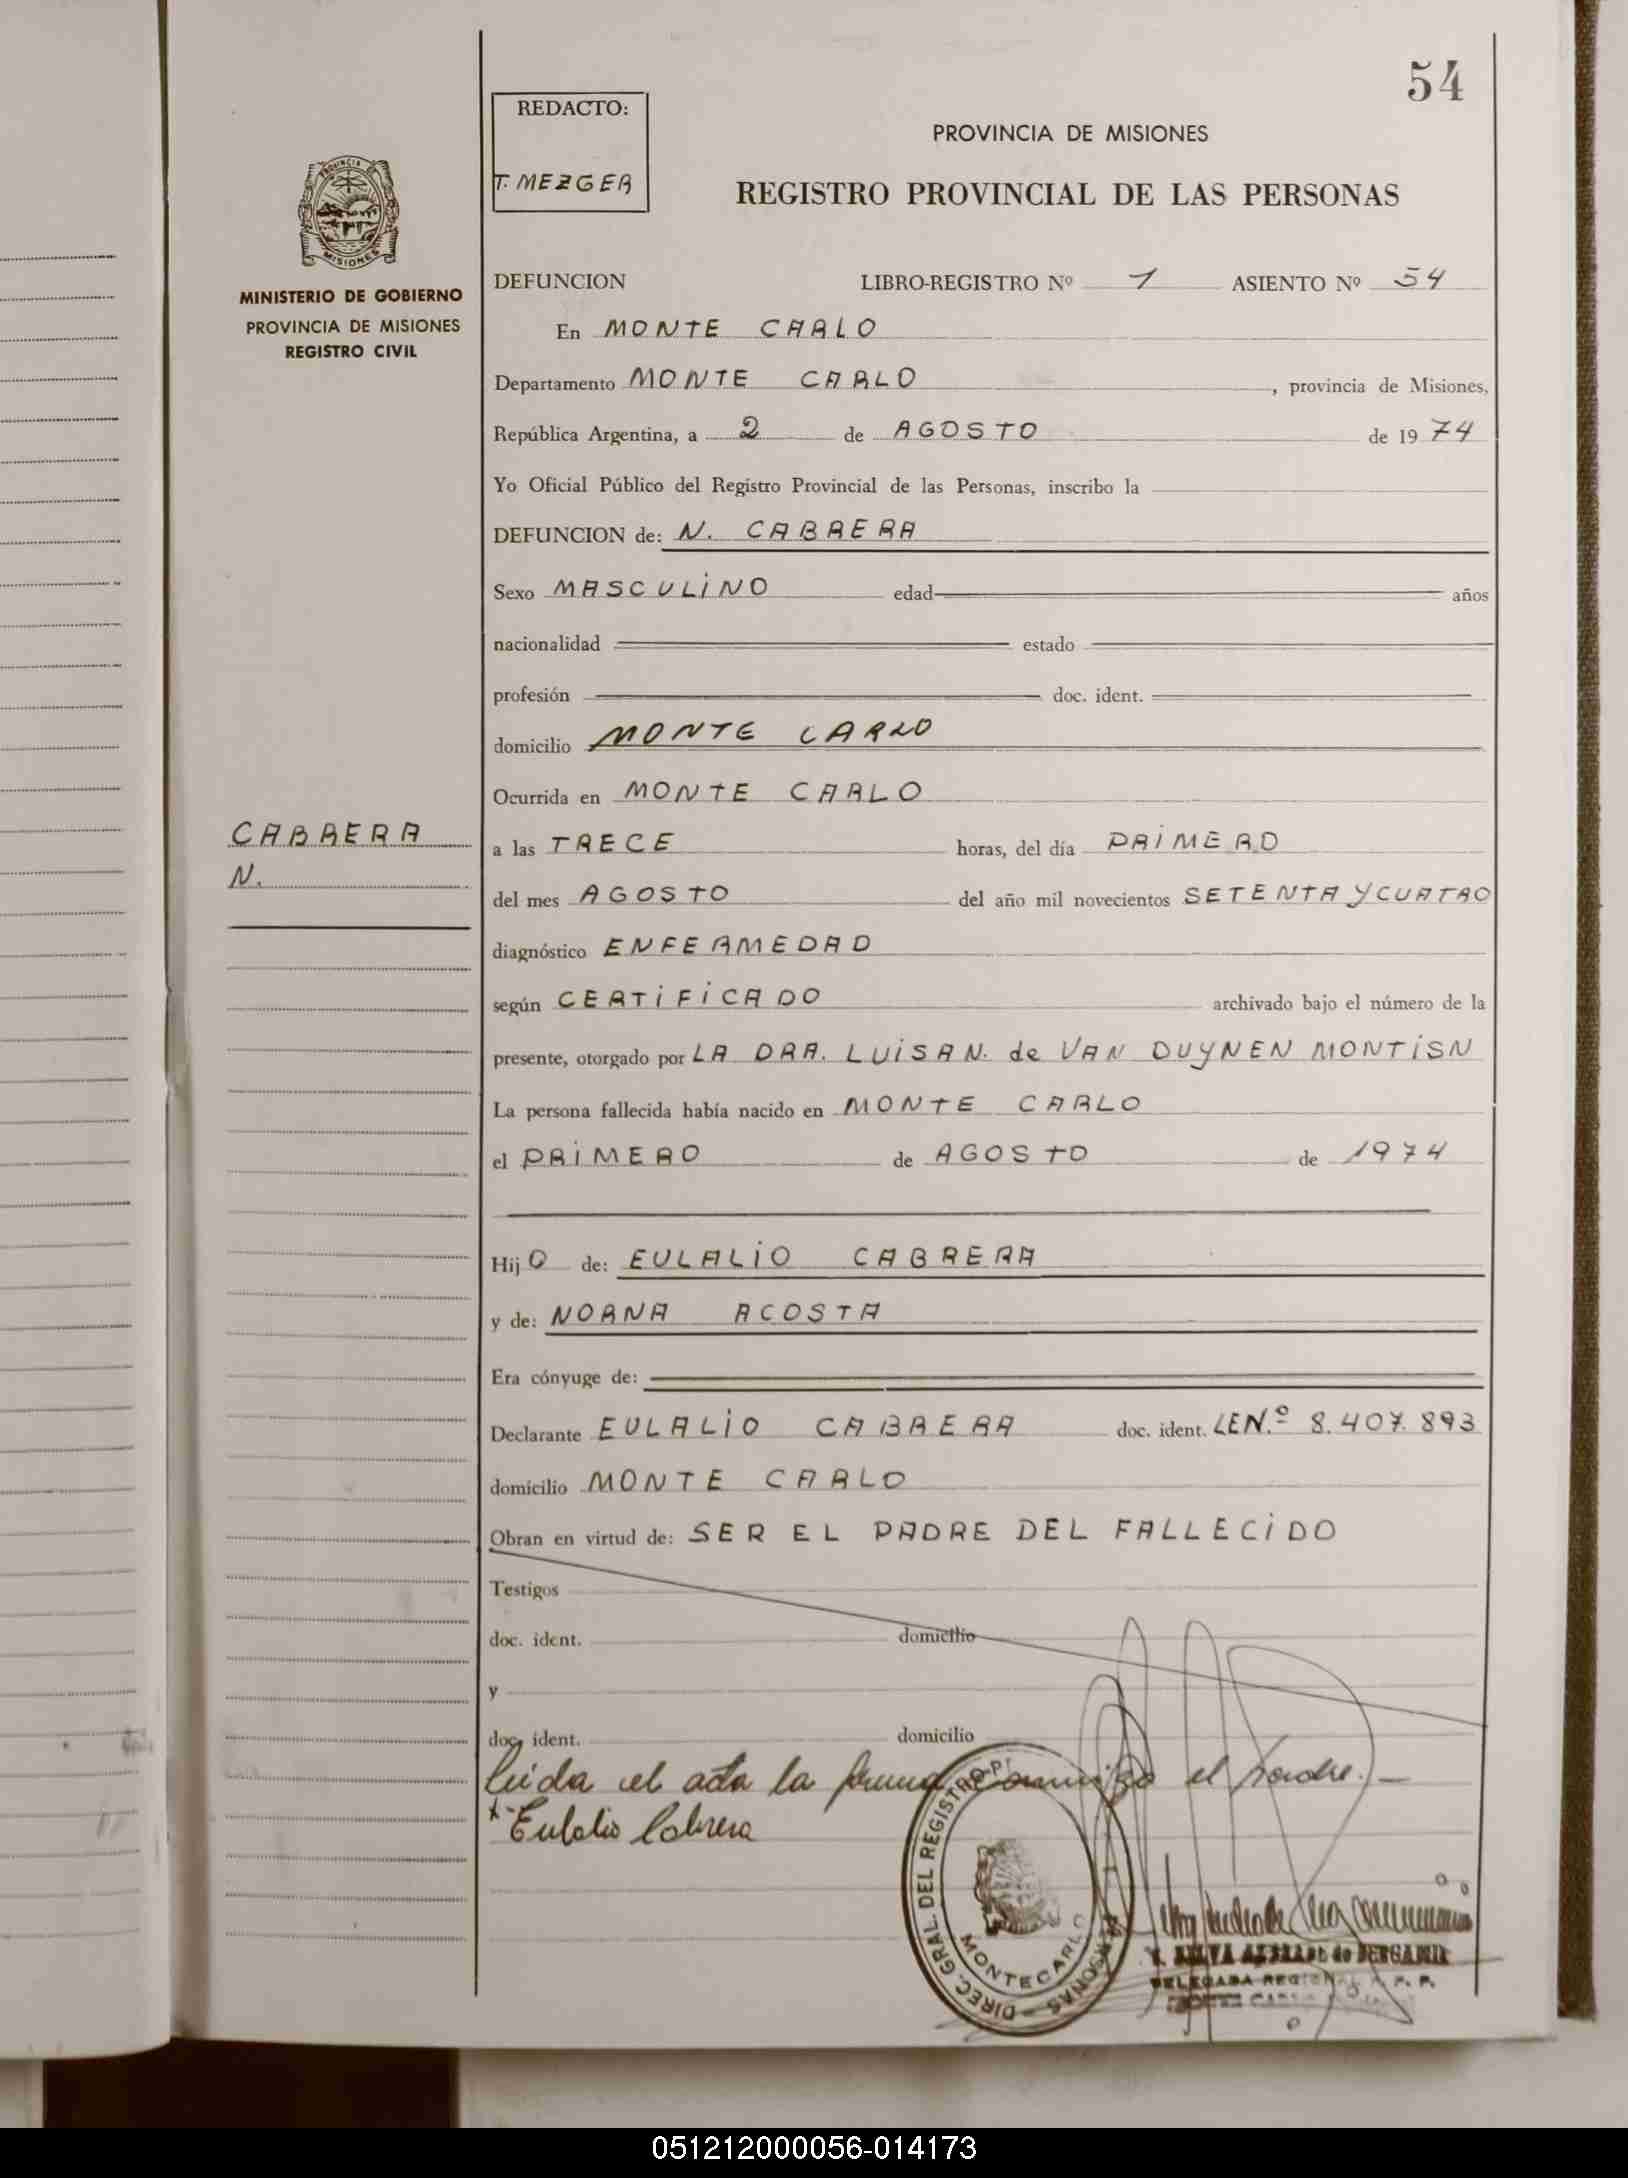 54
REDACTO:
T. MEZGER
PROVINCIA DE MISIONES
REGISTRO PROVINCIAL DE LAS PERSONAS
PROVINCIA DE
MISIONES
MINISTERIO DE GOBIERNO
PROVINCIA DE MISIONES
REGISTRO CIVIL
DEFUNCION LIBRO-REGISTRO Nº 1 ASIENTO Nº 54
En MONTE CARLO
Departamento MONTE CARLO, provincia de Misiones,
República Argentina, a 2 de AGOSTO de 1974
Yo Oficial Público del Registro Provincial de las Personas, inscribo la
DEFUNCION de: N. CABRERA
Sexo MASCULINO edad años
nacionalidad estado
profesión doc. ident.
domicilio MONTE CARLO
Ocurrida en MONTE CARLO
CABRERA
N.
a las TRECE horas, del día PRIMERO
del mes AGOSTO del año mil novecientos SETENTA Y CUATRO
diagnóstico ENFERMEDAD
según CERTIFICADO archivado bajo el número de la
presente, otorgado por LA DRA. LUISA N. de VAN DUYNEN MONTISN
La persona fallecida había nacido en MONTE CARLO
el PRIMERO de AGOSTO de 1974
Hijo de: EULALIO CABRERA
y de: NORMA ACOSTA
Era cónyuge de:
Declarante EULALIO CABRERA doc. ident. LE N.º 8.407.893
domicilio MONTE CARLO
Obran en virtud de: SER EL PADRE DEL FALLECIDO
Testigos
doc. ident. domicilio
y
doc. ident. domicilio
Leida el acta la firma conmigo el padre.-
Eulalio Cabrera
DIREC. GRAL. DEL REGISTRO P. PERSONAS
MONTECARLO
DELEGADA REGIONAL R. P. P.
051212000056-014173